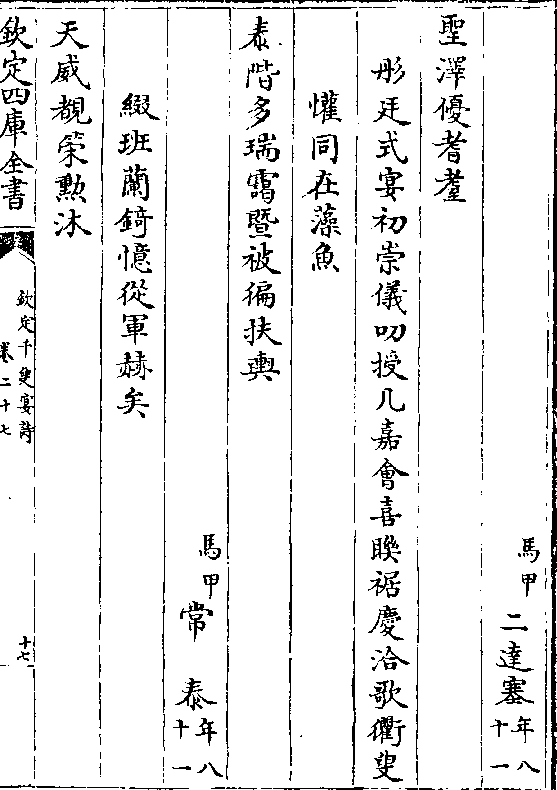 馬甲二達塞年八十一
聖澤優耆耋
彤廷式宴初崇儀叨授几嘉會喜聯裾慶洽歌衢叟
懽同在藻魚
泰階多瑞靄曁被徧扶輿
馬甲常泰年八十一
綴班蘭錡憶從軍赫矣
天威覩榮勲沐
欽定四庫全書
欽定千叟宴詩
卷二十七
十七